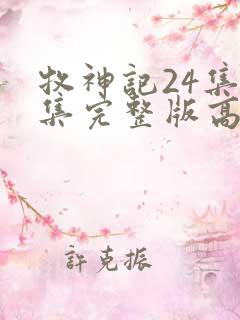 牧神記24集
集完整版高
許克振